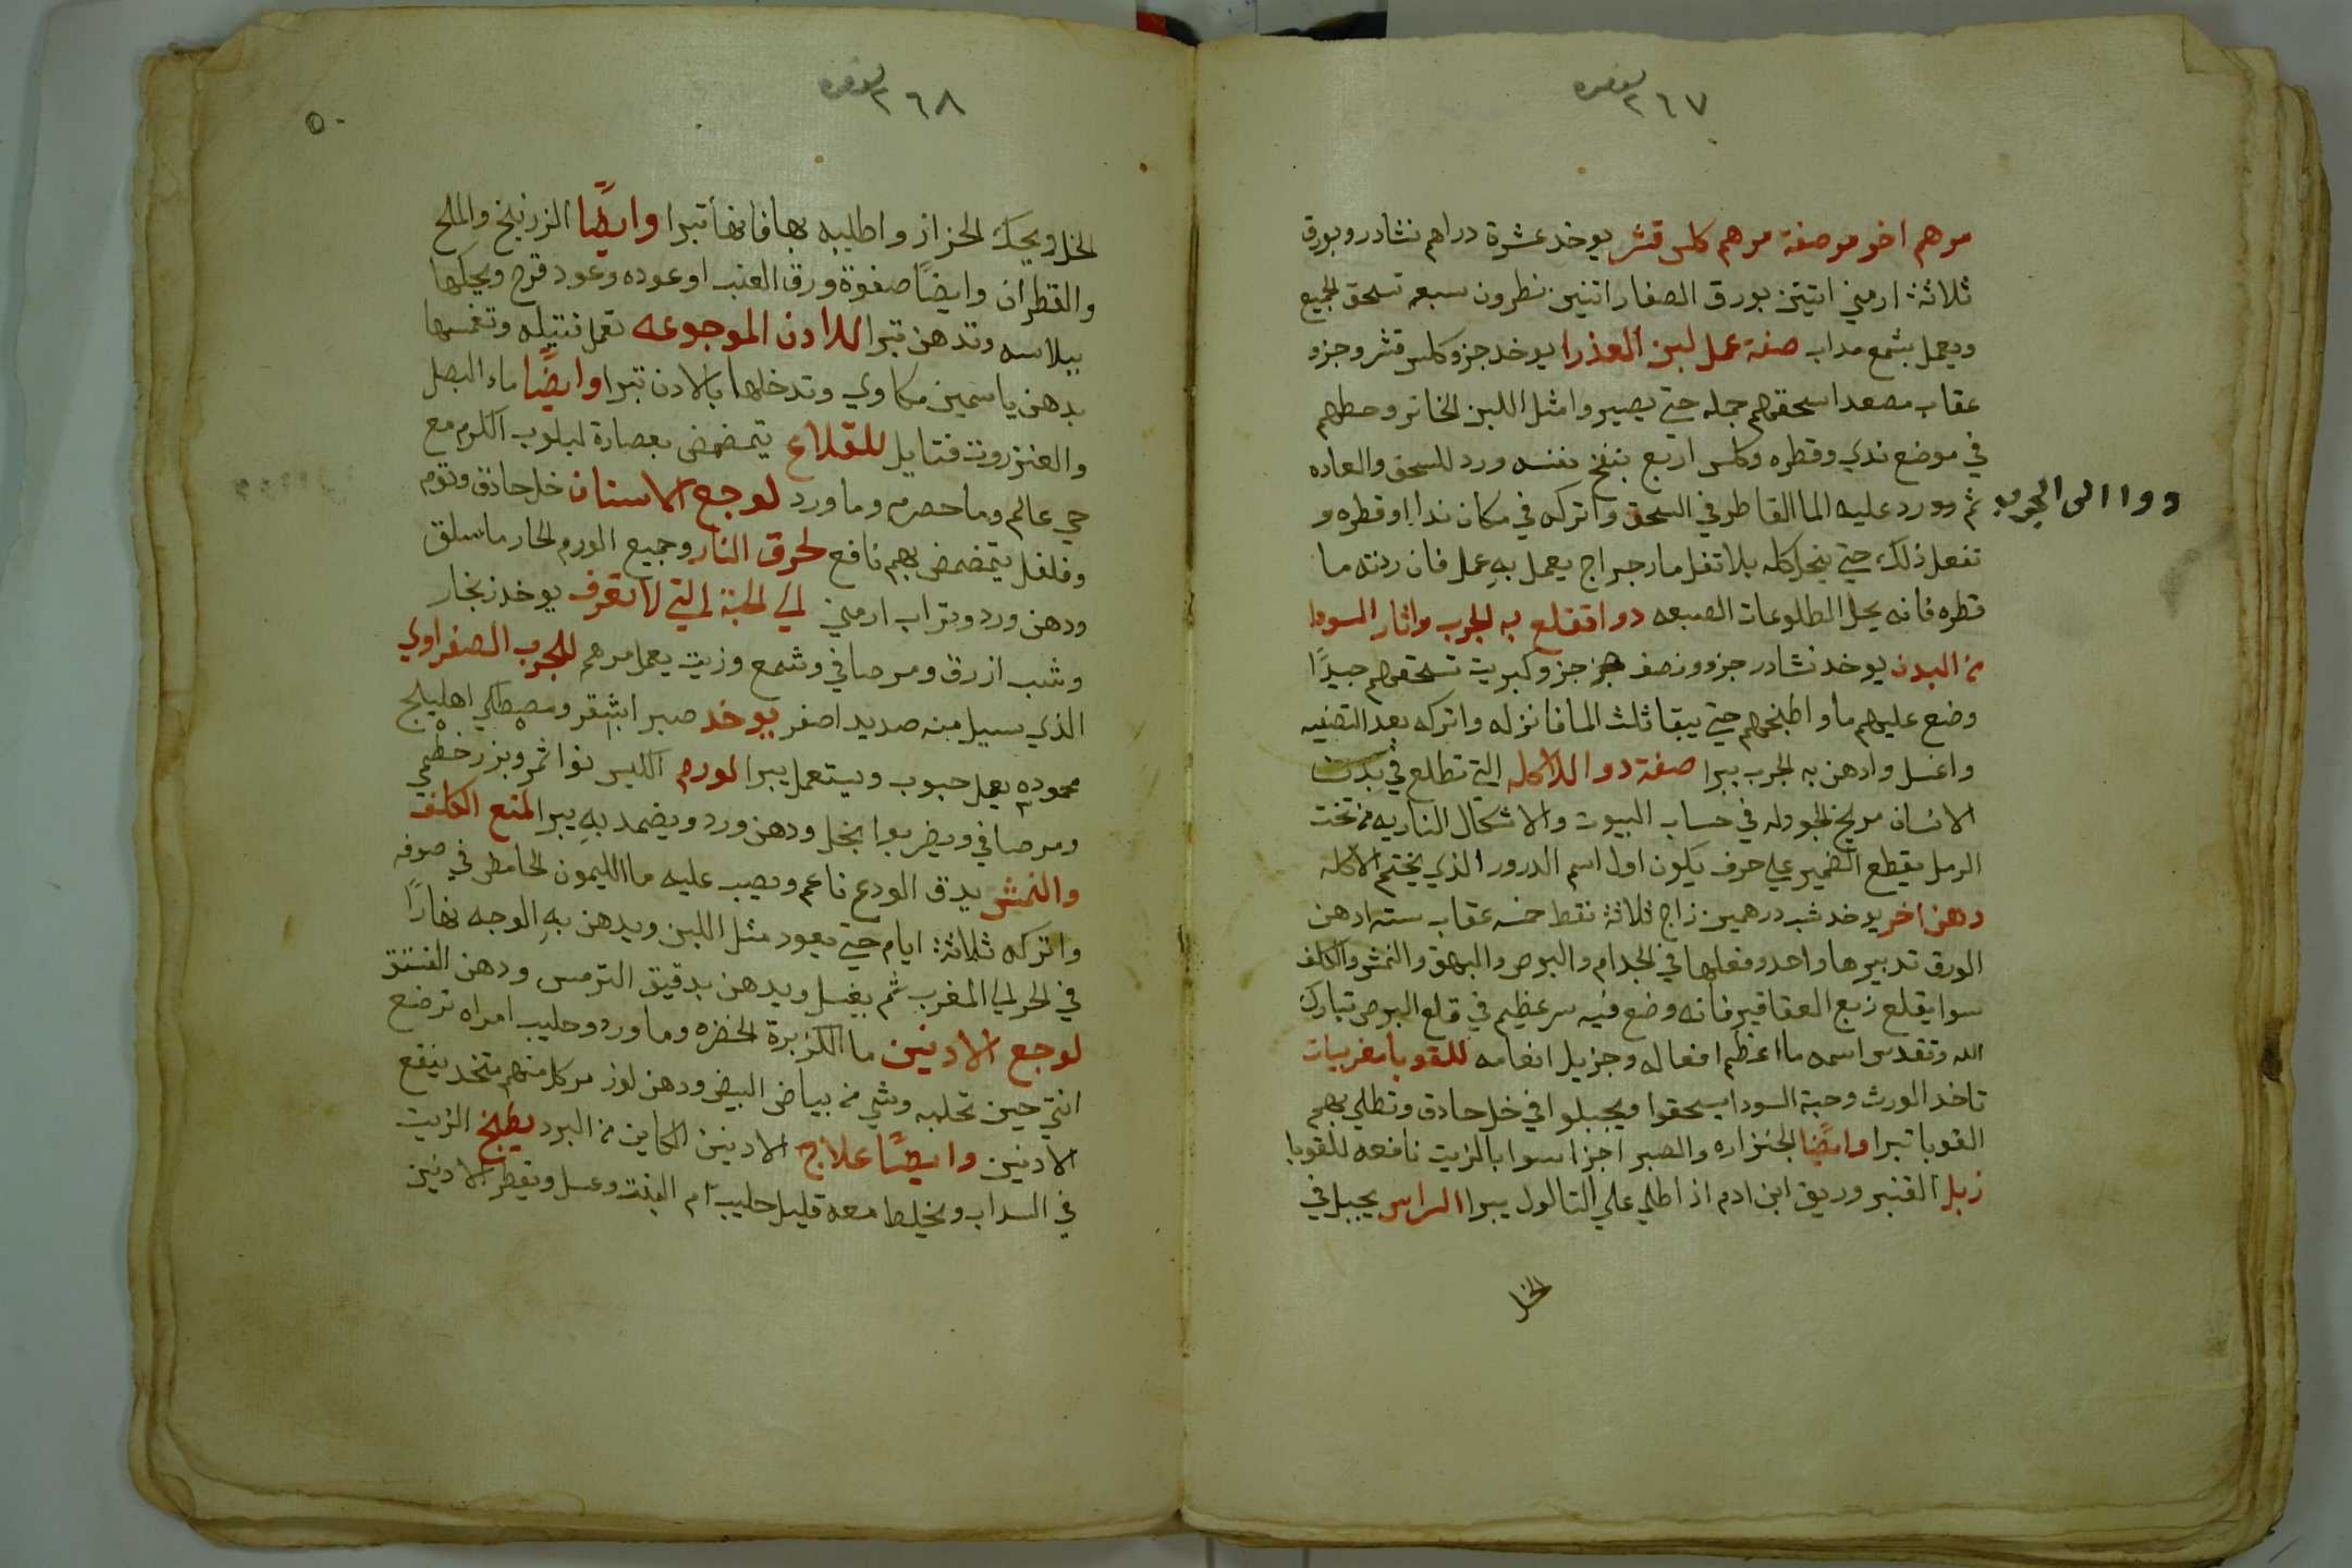 ٢٦٧
مرهم اخر مرصفة مرهم كلس قشر يوخد عشرة دراهم نشادر وبورق
ثلاثة ارمني اتنين بورق الصفار اتنين نطرون سبعه تسحق الجميع
ويعمل بشمع مداب صفة عمل لبن العذرا يوخد جزو كلس قشر وجزو
عقاب مصعد اسحقهم جمله حتي يصيروا مثل اللبن الخاتر وحطهم
في موضع ندي وقطره وكلس اربع بنفخ نفسه ورد للسحق والعاده
ثم ورد عليه الما القاطر في السحق واتركه في مكان ندا اوقطره و
دوا الى الجرب
تفعل ذلك حتي ينحل كله بلا تفل مارجراج يعمل به عمل فان ردته ما
قطره فانه يحل الطلوعات الصبعه دوا تقلع به الجرب واثار السودا
من البدن يوخد نشادر جزو ونصف جزو كبريت تسحقهم جيدًا
وضع عليهم ما واطبخهم حتي يبقا ثلث الما فانزله واتركه بعد التصفيه
واغسل وادهن به الجرب يبرا صفة دوا للاكله التي تطلع في بدن
الانسان مريخ الجودله في حساب البيوت والاشكال الناريه من تخت
الرمل يقطع الضمير علي حرف يكون اول اسم الدرور الذي يختم الاكله
دهن اخر يوخد شب درهمين زاج ثلاثة نقط خمسه عقاب سته ادهن
الورق تدبيرها واحد وفعلها في الجدام والبرص والبهق والنمش والكلف
سوا يقلع زبع العقاقير فانه وضع فيه سر عظيم في قلع البرص تبارك
الله وتقدس اسمه ما اعظم افعاله وجزيل انعامه للقوبا مغربيات
تاخد الورث وحبة السودا يسحقوا ويجبلوا في خل حادق وتطلي بهم
القوبا تبرا وايضًا الجنزاره والصبر اجزا سوا بالزيت نافعه للقوبا
زبل القنبر وريق ابن ادم اذا طلي علي التالول يبرا الراس يجبل في
الخل
٢٦٨
٥٠
الخل ويحك الحزاز واطليه بها فانها تبرا وايضًا الزرنيخ والملح
والقطران وايضًا صفوة ورق العنب او عوده وعود قرح ويحكها
ببلاسه وتدهن تبرا للادن الموجوعه تعمل فتيله وتغمسها
بدهن ياسمين مكاوي وتدخلها بالادن تبرا وايضًا ماء البصل
والعنزروت فتايل للقلاع يتمضمض بعصارة لبلوب الكرم مع
حي عالم وما حصرم وما ورد لوجع الاسنان خل حادق وتوم
وفلفل يتمضمض بهم نافع لحرق النار وجميع الورم الحار ما سلق
ودهن ورد وتراب ارمني الي الحبة التي لا تعرف يوخد زنجار
وشب ازرق ومرصافي وشمع وزيت يعمل مرهم للجرب الصفراوي
الذي يسيل منه صديد اصفر يوخد صبر اشقر ومصطكي اهليلج
محموده يعمل حبوب ويستعمل يبرا لورم الكليس نوا ثمر وبزر خطمي
ومرصافي ويضربوا بخل ودهن ورد ويضمد به يبرا لمنع الكلف
والنمش يدق الودع ناعم ويصب عليه ما الليمون الحامض في صوفه
واتركه ثلاثة ايام حتي يعود مثل اللبن ويدهن به الوجه نهارًا
في الحر الي المغرب ثم يغسل ويدهن بدقيق الترمس ودهن الفستق
لوجع الادنين ما الكزبرة الخضره وما ورد وحليب امراه ترضع
انتي حين تحلبه وشي من بياض البيض ودهن لوز مر كل منهم متخد ينفع
الادنين وايضًا علاج الادنين الكاين من البرد يطبخ الزيت
في السداب ويخلط معه قليل حليب ام البنت وعسل ويقطر الادنين